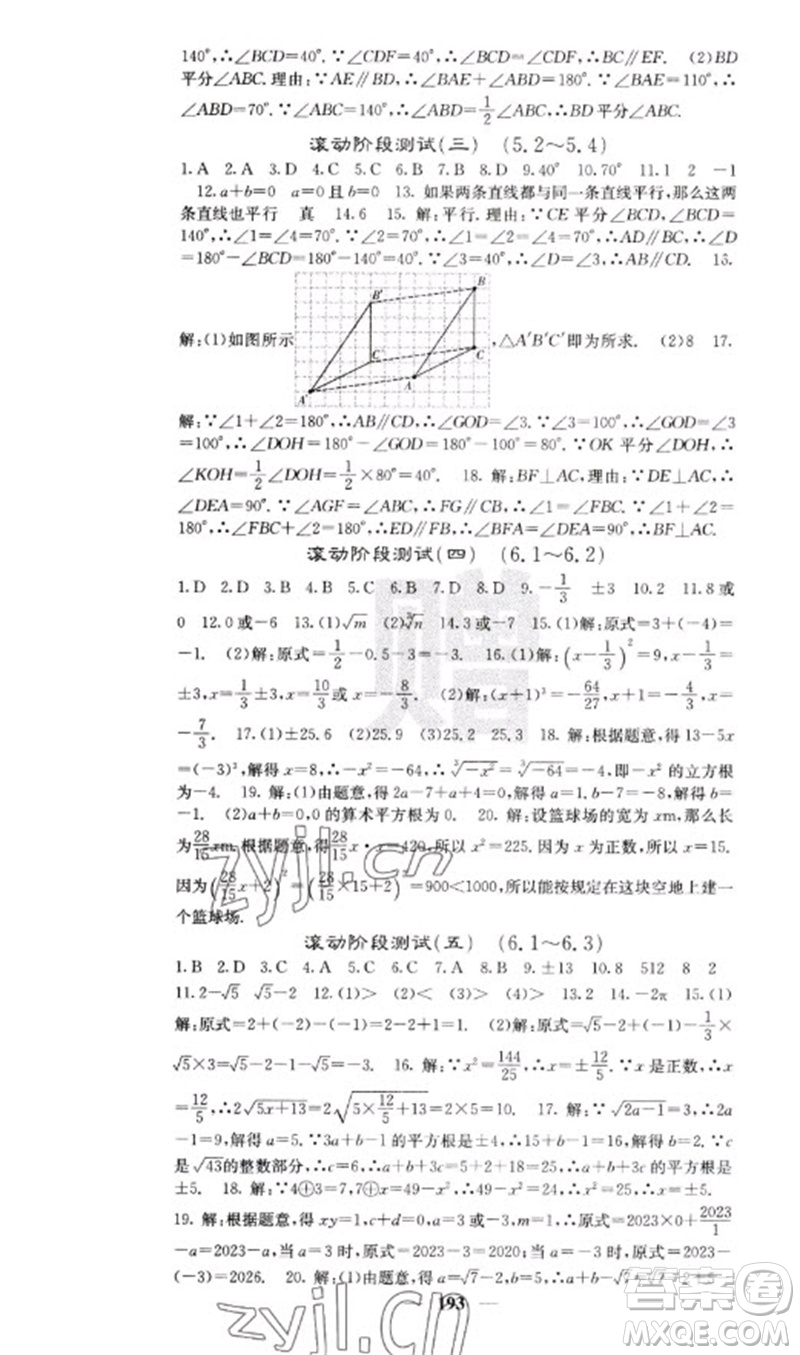 140°,∴∠BCD=40°.∵∠CDF=40°,∴∠BCD=∠CDF,∴BC∥EF. (2)BD
平分∠ABC.理由:∵AE∥BD,∴∠BAE+∠ABD=180°.∵∠BAE=110°,∴
∠ABD=70°.∵∠ABC=140°,∴∠ABD=1/2∠ABC,∴BD平分∠ABC.
滚动阶段测试(三) (5.2~5.4)
1.A 2.A 3.D 4.C 5.C 6.B 7.B 8.D 9.40° 10.70° 11.1 2 -1
12.a+b=0 a=0且b=0 13.如果两条直线都与同一条直线平行,那么这两
条直线也平行 真 14.6 15.解:平行.理由:∵CE平分∠BCD,∠BCD=
140°,∴∠1=∠4=70°.∵∠1=∠2=70°,∴∠2=∠4=70°,∴AD∥BC,∴∠D
=180°-∠BCD=180°-140°=40°.∵∠3=40°,∴∠D=∠3,∴AB∥CD. 16.
B′
B
解:(1)如图所示
C′
C
,△A′B′C′即为所求. (2)8 17.
A′
A
解:∵∠1+∠2=180°,∴AB∥CD,∴∠GOD=∠3.∵∠3=100°,∴∠GOD=∠3
=100°,∴∠DOH=180°-∠GOD=180°-100°=80°.∵OK平分∠DOH,∴
∠KOH=1/2∠DOH=1/2×80°=40°. 18.解:BF⊥AC,理由:∵DE⊥AC,∴
∠DEA=90°.∵∠AGF=∠ABC,∴FG∥CB,∴∠1=∠FBC.∵∠1+∠2=
180°,∴∠FBC+∠2=180°,∴ED∥FB,∴∠BFA=∠DEA=90°,∴BF⊥AC.
滚动阶段测试(四) (6.1~6.2)
1.D 2.D 3.D 4.C 5.C 6.B 7.D 8.D 9.-1/3 ±3 10.2 11.8或
0 12.0或-6 13.(1)√m (2)∛n 14.3或-7 15.(1)解:原式=3+(-4)=
-1. (2)解:原式=1/2-0.5-3=-3. 16.(1)解:(x-1/3)²=9,x-1/3=
±3,x=1/3±3,x=10/3或x=-8/3. (2)解:(x+1)³=-64/27,x+1=-4/3,x=
-7/3. 17.(1)±25.6 (2)25.9 (3)25.5 25.8 18.解:根据题意,得13-5x
=(-3)³,解得x=8,∴∛-x²=∛-64=-4,即-x²的立方根
为-4. 19.解:(1)由题意,得2a-7+a+4=0,解得a=1,b-7=-8,解得b=
-1. (2)a+b=0,0的算术平方根为0. 20.解:设篮球场的宽为xm,那么长
为28/15xm,根据题意,得28/15x·x=420,所以x²=225.因为x为正数,所以x=15.
因为(28/15x+2)²=(28/15×15+2)²=900<1000,所以能按规定在这块空地上建一
个篮球场.
滚动阶段测试(五) (6.1~6.3)
1.B 2.D 3.C 4.A 5.C 6.A 7.D 8.B 9.±13 10.8 512 8 2
11.2-√5 √5-2 12.(1)> (2)< (3)> (4)> 13.2 14.-2π 15.(1)
解:原式=2+(-2)-(-1)=2-2+1=1. (2)解:原式=√5-2+(-1)-1/3×
√5×3=√5-2-1-√5=-3. 16.解:∵x²=144/25,∴x=±12/5.∵x是正数,∴x=
12/5,∴2√5x+13=2√5×12/5+13=2×5=10. 17.解:∵√2a-1=3,∴2a
-1=9,解得a=5.∵3a+b-1的平方根是±4,∴3a+b-1=16,∴b=2.∵c
是√43的整数部分,∴c=6,∴a+b+3c=5+2+18=25,∴a+b+3c的平方根是
±5. 18.解:∵4⊕3=7,7⊕x=49-x²,∴49-x²=24,∴x²=25,∴x=±5.
19.解:根据题意,得xy=1,c+d=0,a=3或-3,m=1,∴原式=2023×0+2023/1
-a=2023-a,当a=3时,原式=2023-3=2020;当a=-3时,原式=2023-
(-3)=2026. 20.解:(1)由题意,得a=√7-2,b=
193
赠
zyjl.cn
zyjl.cn
答案圈
MXQE.COM